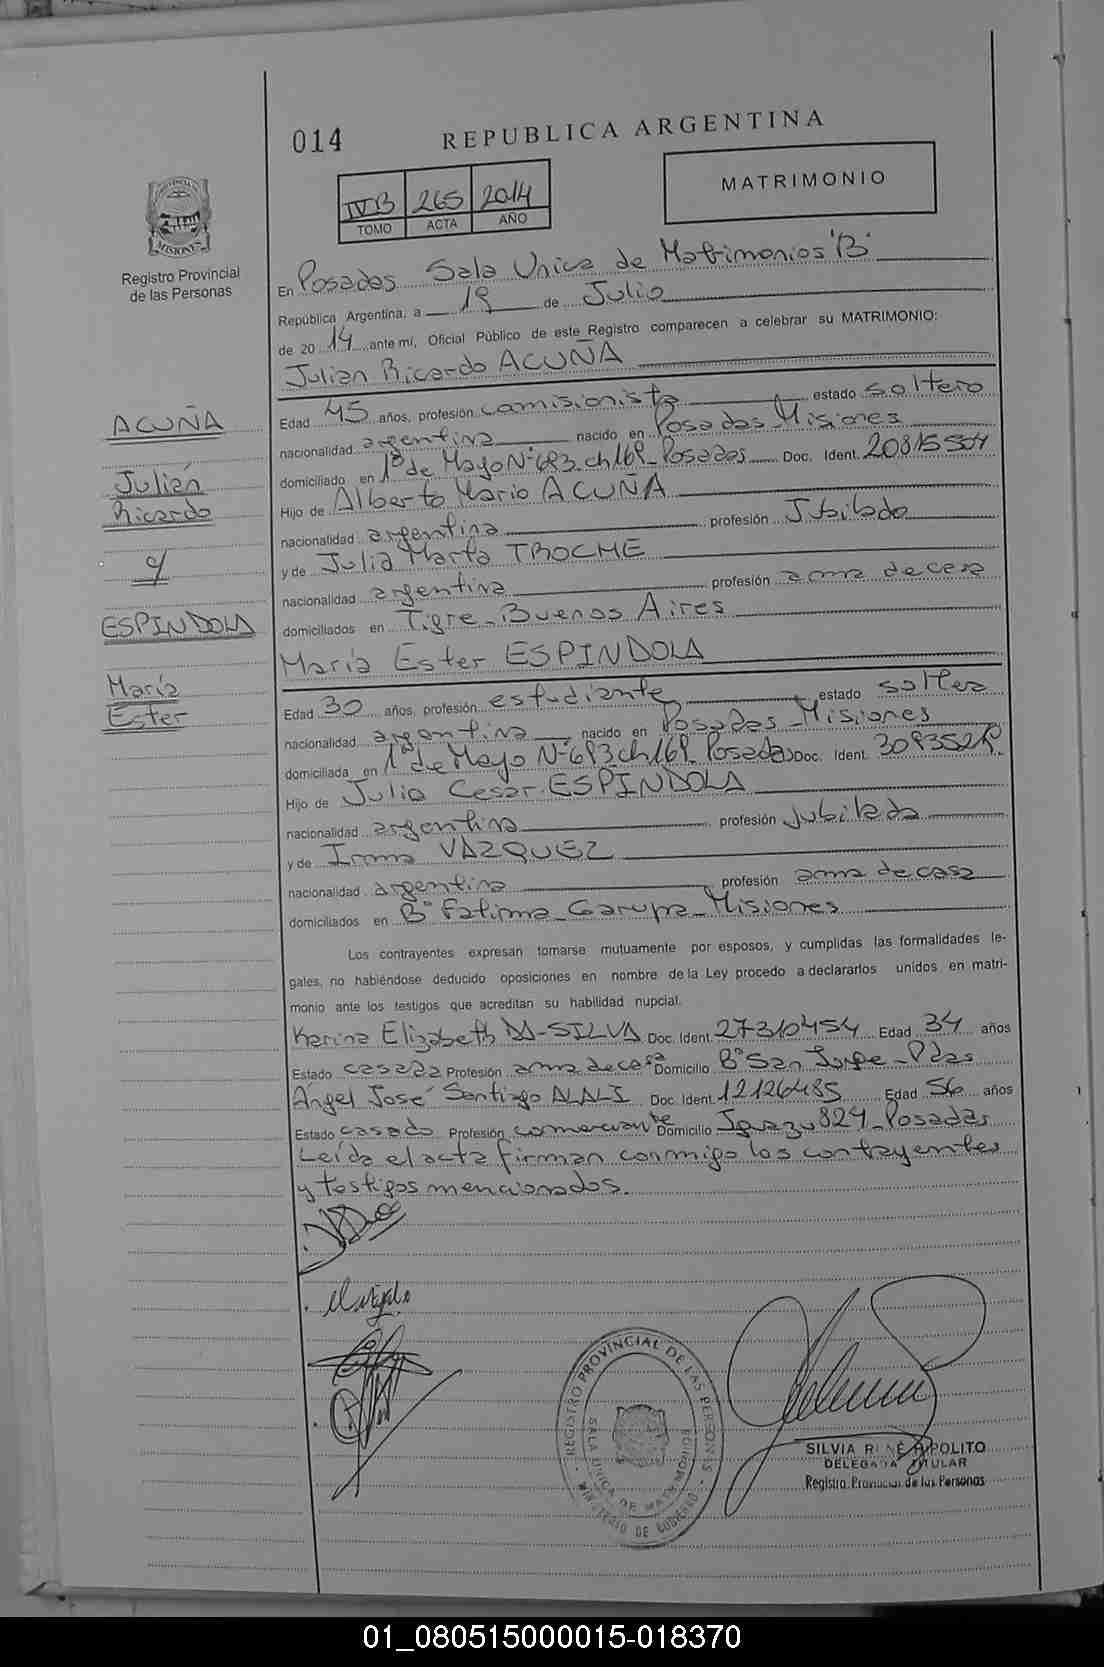 014
REPUBLICA ARGENTINA
MATRIMONIO
IV B 265 2014
TOMO ACTA AÑO
PROVINCIA DE MISIONES
Registro Provincial
de las Personas
En Posadas Sala Unica de Matrimonios "B"
República Argentina, a 18 de Julio
de 2014 ante mí, Oficial Público de este Registro comparecen a celebrar su MATRIMONIO:
Julian Ricardo ACUÑA
ACUÑA
Julián
Ricardo
c/
ESPINDOLA
María
Ester
Edad 45 años, profesión comisionista estado soltero
nacionalidad argentina nacido en Posadas Misiones
domiciliado en 1º de Mayo Nº 693 ch 169 Posadas Doc. Ident. 20815504
Hijo de Alberto Mario ACUÑA
nacionalidad argentina profesión Jubilado
y de Julia Marta TROCHE
nacionalidad argentina profesión ama de casa
domiciliados en Tigre - Buenos Aires
María Ester ESPINDOLA
Edad 30 años, profesión estudiante estado soltera
nacionalidad argentina nacido en Posadas - Misiones
domiciliada en 1º de Mayo Nº 693 ch 169 Posadas Doc. Ident.
Hijo de Julio Cesar ESPINDOLA
nacionalidad argentina profesión jubilado
y de Irma VAZQUEZ
nacionalidad argentina profesión ama de casa
domiciliados en Bº Fatima - Garupa - Misiones
Los contrayentes expresan tomarse mutuamente por esposos, y cumplidas las formalidades le-
gales, no habiéndose deducido oposiciones en nombre de la Ley procedo a declararlos unidos en matri-
monio ante los testigos que acreditan su habilidad nupcial.
Karina Elizabeth DA-SILVA Doc. Ident. 27310454 Edad 34 años
Estado casada Profesión ama de casa Domicilio Bº San Jorge - Pdas
Ángel José Santiago ALALI Doc. Ident. 12126485 Edad 56 años
Estado casado Profesión comerciante Domicilio Iguazu 824 - Posadas
Leída el acta firman conmigo los contrayentes
y testigos mencionados.
REGISTRO PROVINCIAL DE LAS PERSONAS
SALA UNICA DE MATRIMONIOS
MINISTERIO DE GOBIERNO
SILVIA RENÉ APOLITO
DELEGADA TITULAR
Registro Provincial de las Personas
01_080515000015-018370